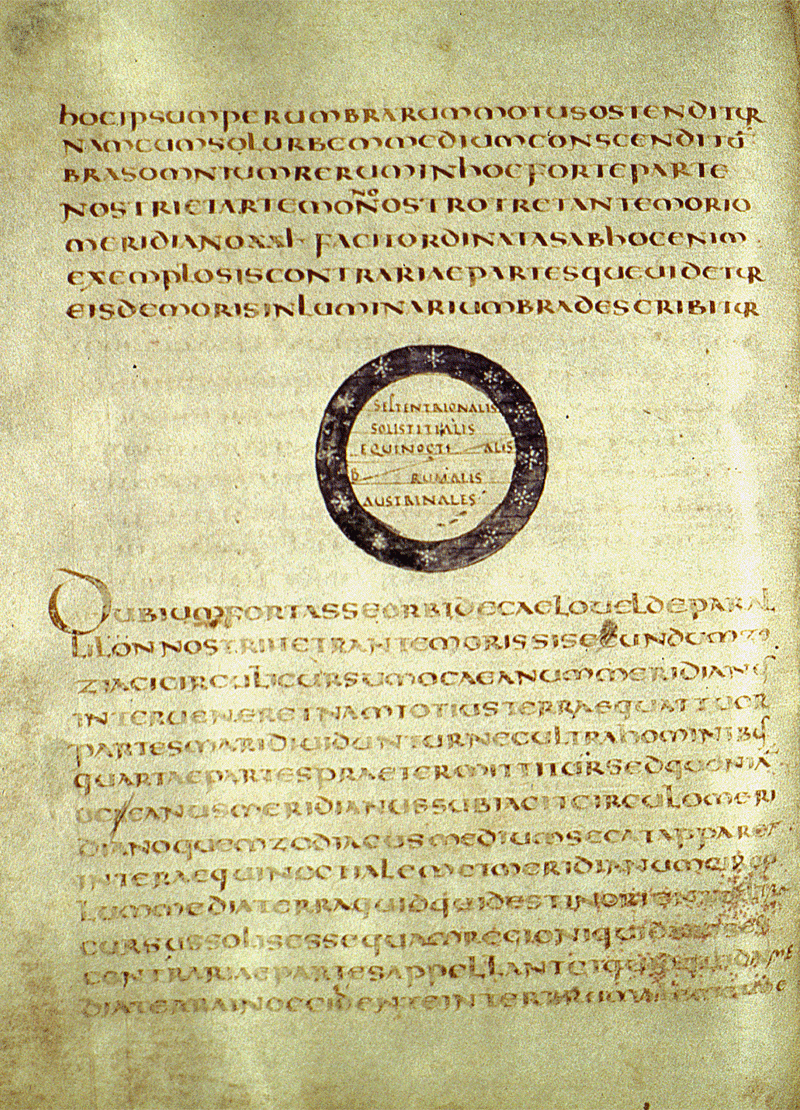 hocipsumperumbrarummotusostenditur
namcumsolurbemmediumconscenditū
brasomniumreruminhocforteparte
nostrietartemonostrotretantemorio
no
meridianoxxl·facitordinatasabhocenim
exemplosiscontrariaepartesqueuidetur
eisdemorisinluminariumbradescribitur
SEPTENTRIONALIS
SOLISTITIALIS
EQUINOCTI ALIS
B RUMALIS
AUSTRINALES
Dubiumfortasseorbidecaeloueldeparal
lilonnostri
ziacicirculicursumocaeanummeridian
interueneretnamtotiusterraequattuor
partesmaridiuidunturnecultrahominibus
quartaepartespraetermittitursedquoniā
oceanusmeridianussubiacitcirculomeri
dianoquemzodiacusmediumsecatappare
interaequinoctialemetmeridianum
lummediaterraquidquidest
cursussolisessequamregioniqui
contrariaepartesappellant
diaterrainoccidenteinter